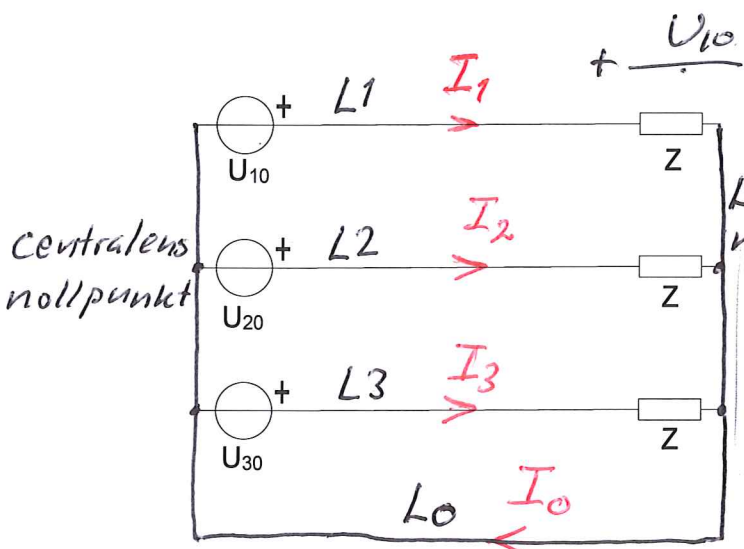 + U10
L1
I1
+
Z
U10
centralens
nollpunkt
L2
I2
+
Z
U20
L3
I3
+
Z
U30
L0
I0